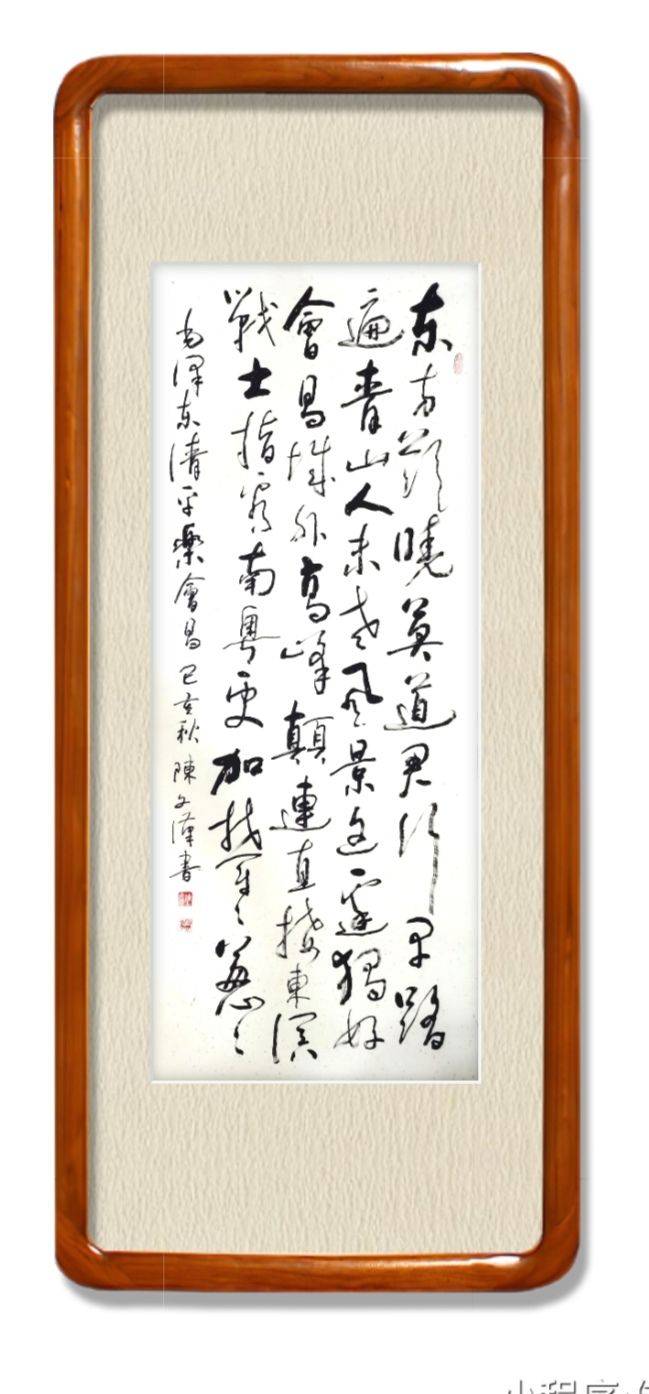 东方欲曉莫道君行早踏
遍青山人未老风景这邊獨好
會昌城外高峰顛連直接東溟
戰士指看南粤更加郁〻葱〻
毛泽东清平樂會昌 己亥秋 陳文漢書
小程序